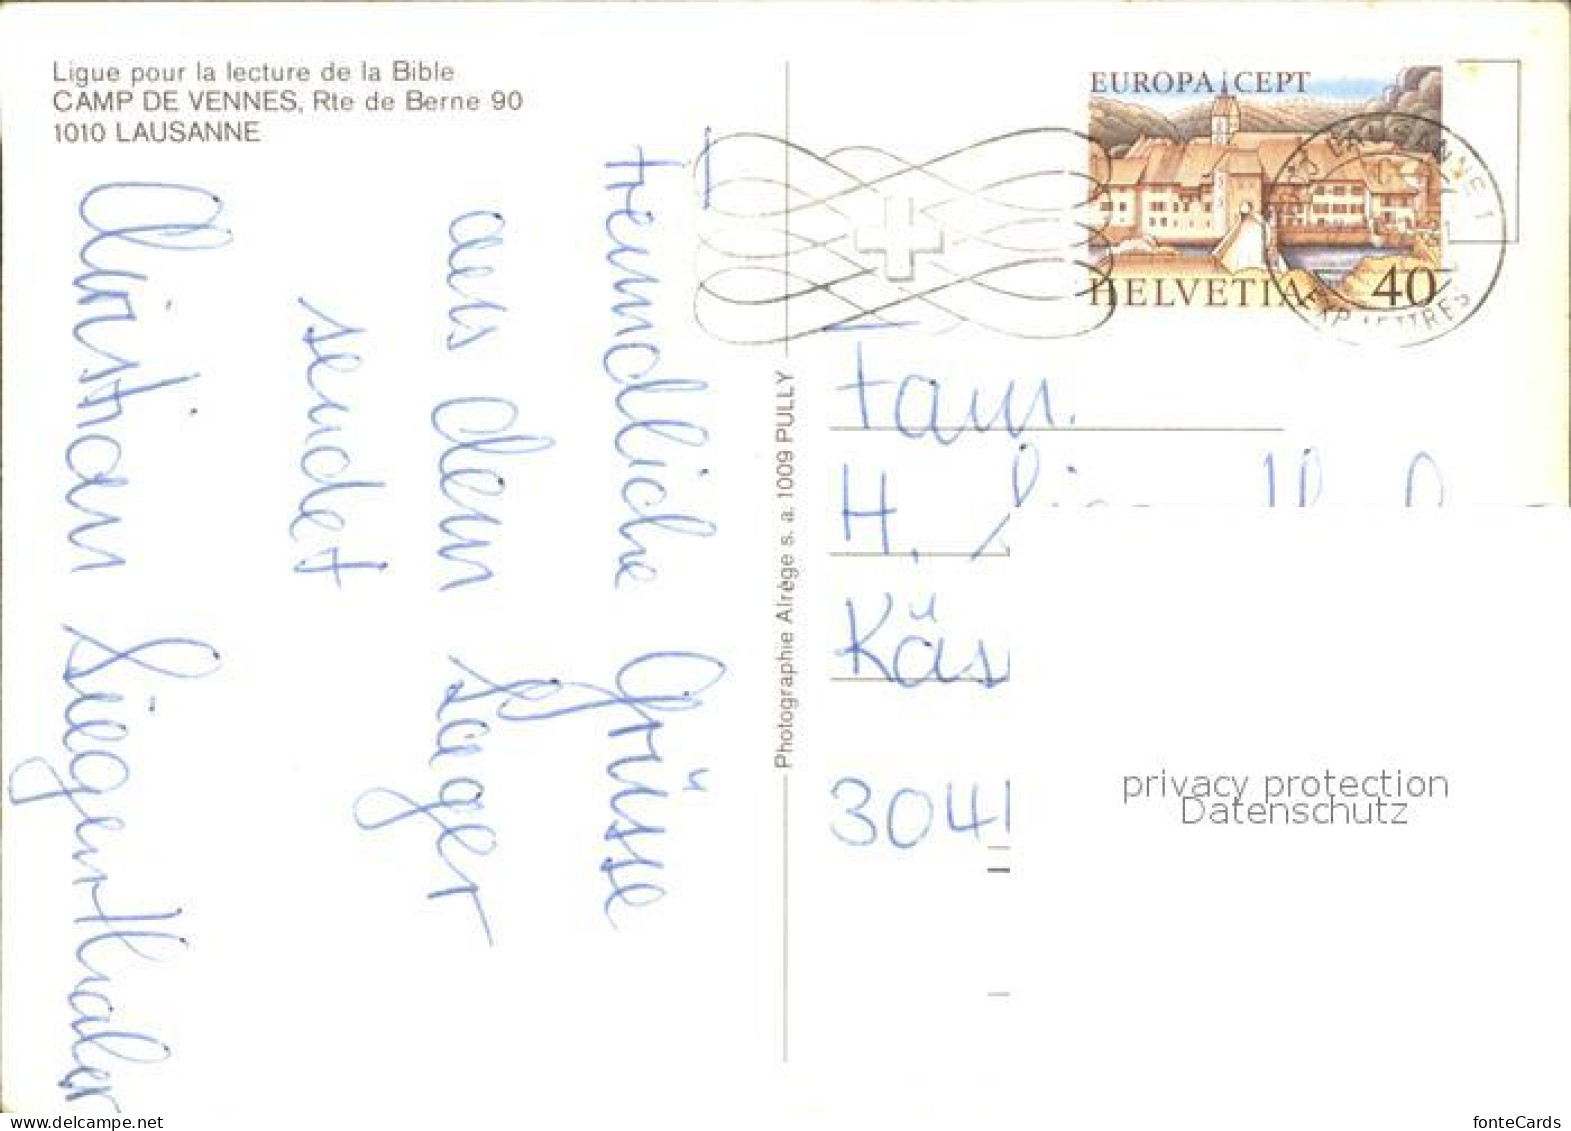 Ligue pour la lecture de la Bible
CAMP DE VENNES, Rte de Berne 90
1010 LAUSANNE
Freundliche Grüsse
aus dem Lager
sendet
Christian Siegenthaler
Photographie Alrège s. a. 1009 PULLY
EUROPA CEPT
HELVETIA 40
LAUSANNE 1
EXP. LETTRES
Fam.
H.
3041
privacy protection
Datenschutz
www.delcampe.net
fonteCards